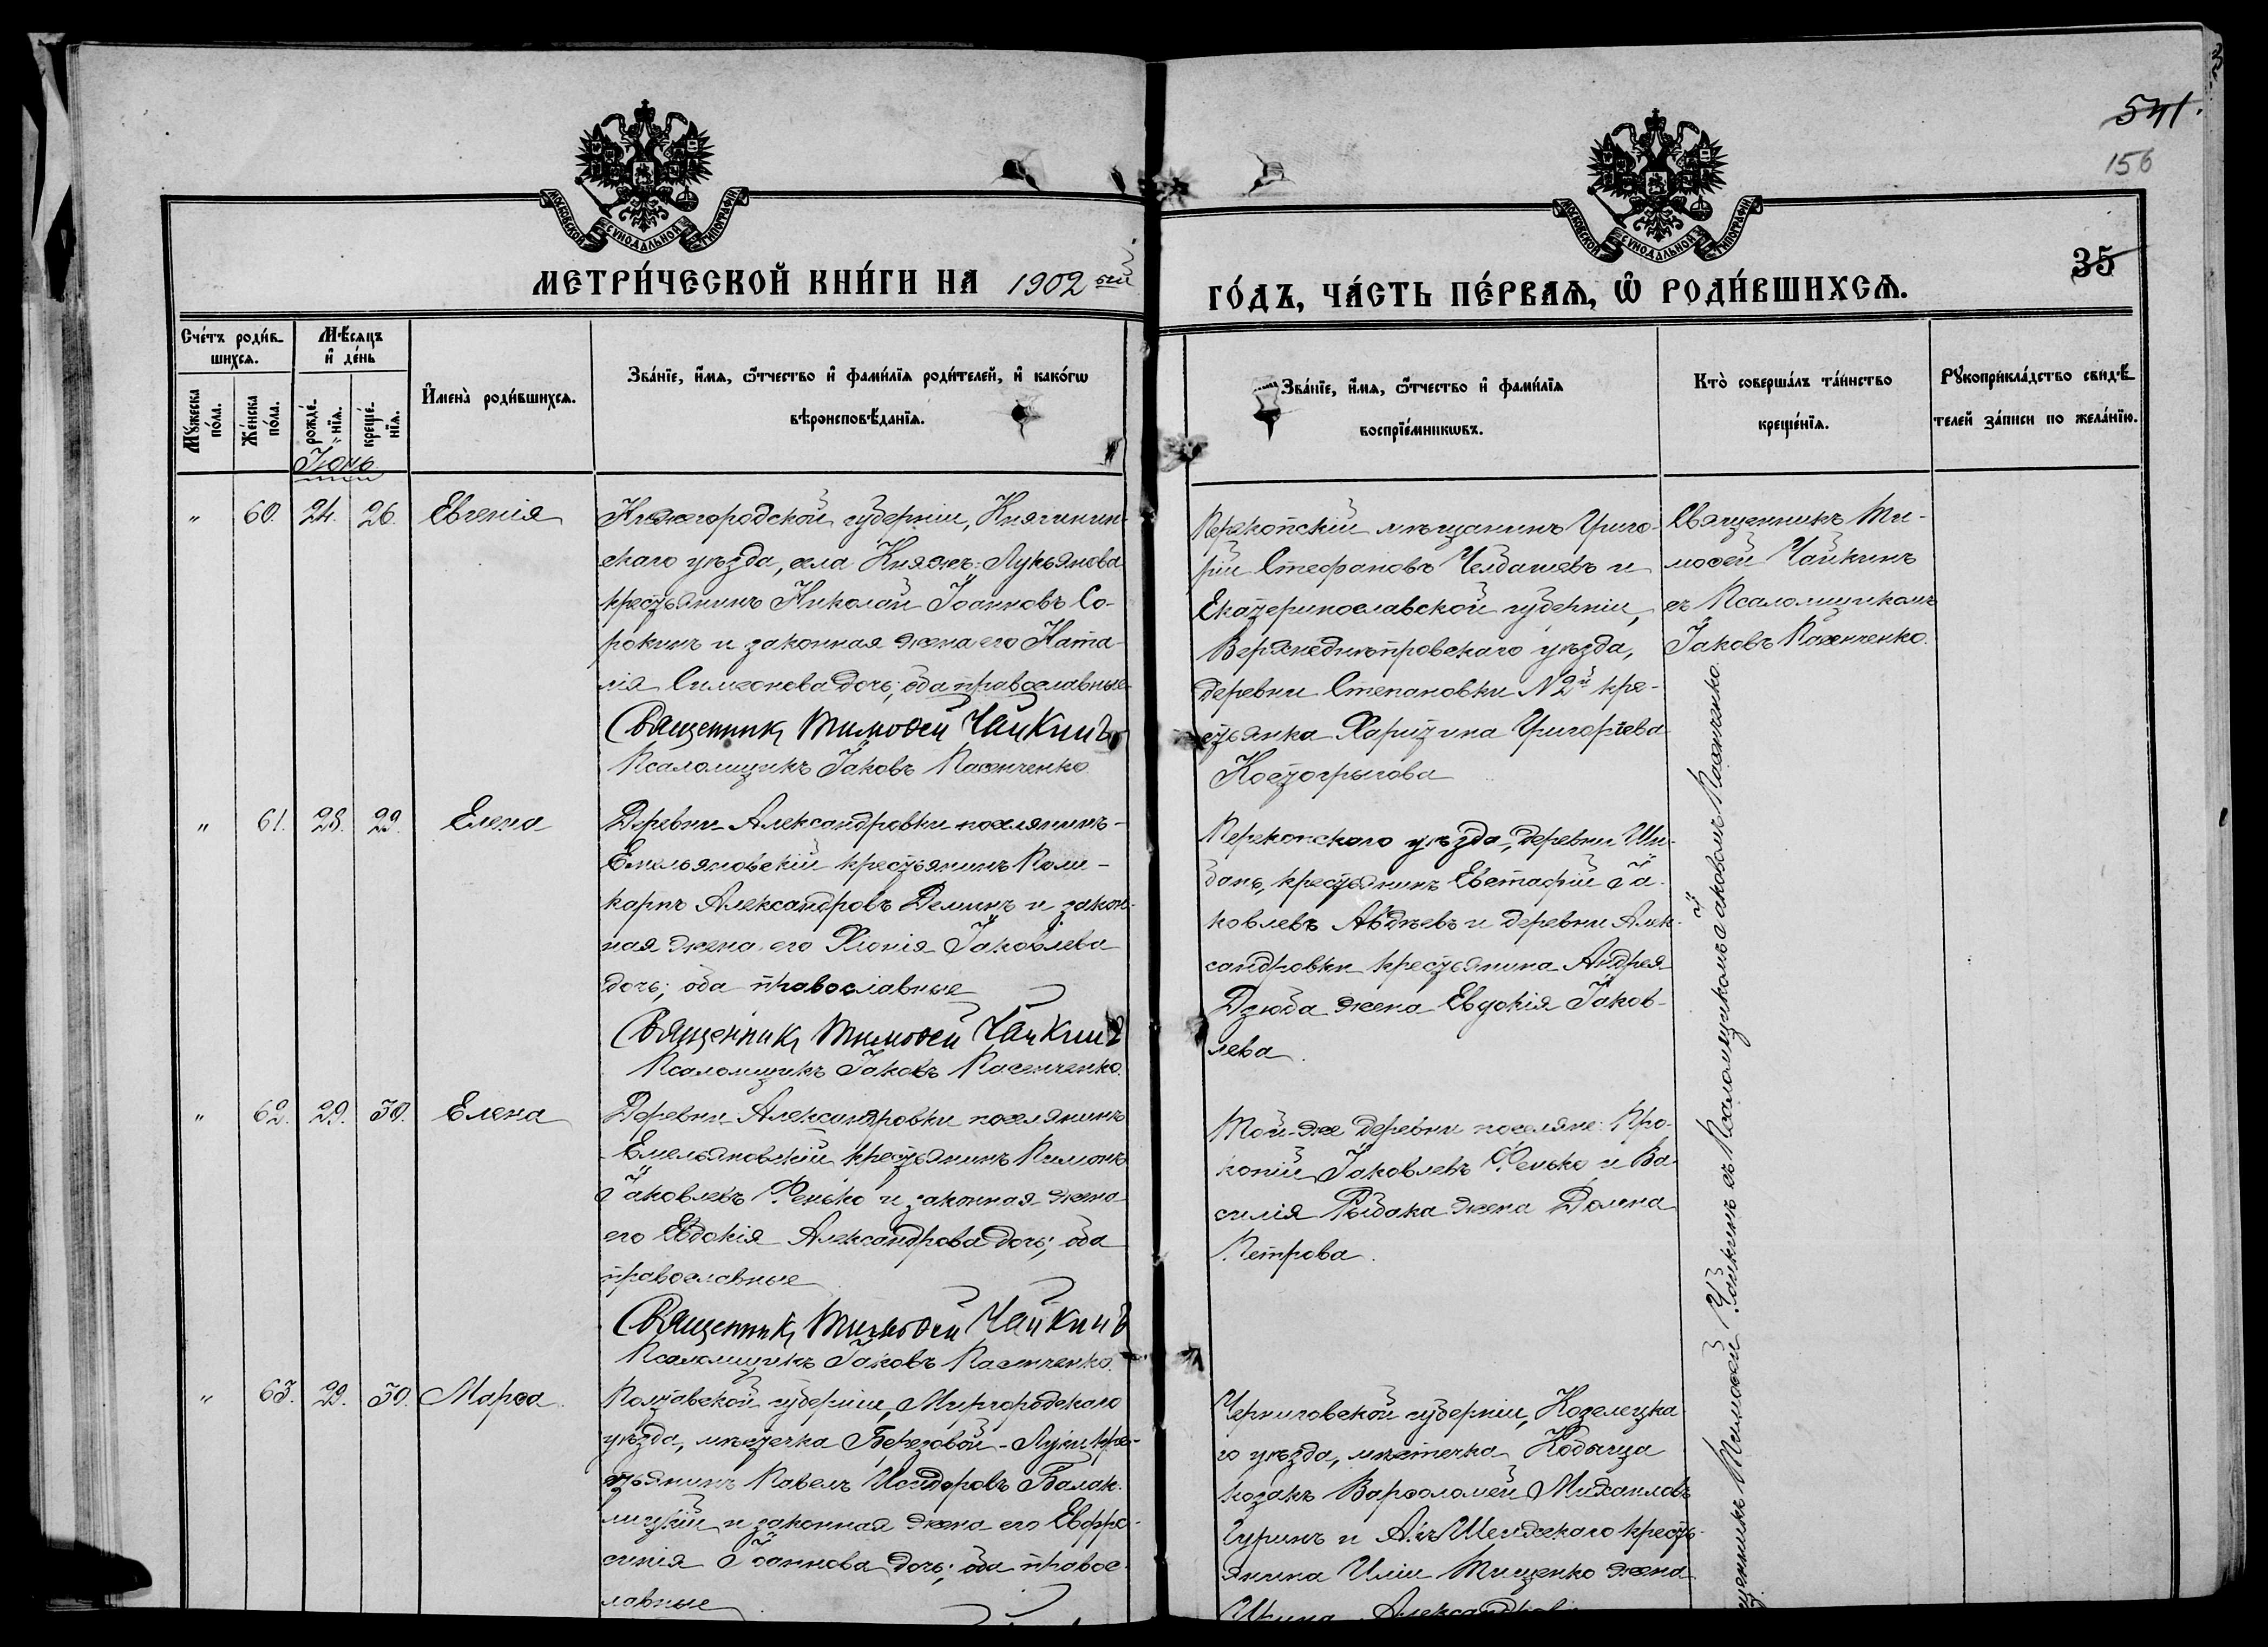 541.
156
35
МОСКОВСКОЙ СУНОДАЛЬНОЙ ТИПОГРАФІИ
МОСКОВСКОЙ СУНОДАЛЬНОЙ ТИПОГРАФІИ
МЕТРИ́ЧЕСКОЙ КНИ́ГИ НА 1902 ый
ГО́ДЪ, ЧА́СТЬ ПЕ́РВАѦ, Ѡ РОДИ́ВШИХСѦ.
Сче́тъ роди́в-
шихсѧ.
Мѣ́сяцъ
и҆ де́нь
Мꙋ́жеска
по́ла.
Же́нска
по́ла.
рожде́-
нїѧ.
креще́-
нїѧ.
И҆мена̀ роди́вшихсѧ.
Зва́нїе, и҆́мѧ, ѻ҆́тчество и҆ фами́лїѧ роди́телей, и҆ како́гѡ
вѣроисповѣ́данїѧ.
Зва́нїе, и҆́мѧ, ѻ҆́тчество и҆ фами́лїѧ
воспрїе́мникѡвъ.
Кто̀ соверша́лъ та́инство
креще́нїѧ.
Рꙋкоприкла́дство свидѣ́-
телей за́писи по жела́нїю.
Іюнь
" 60. 24. 26. Евгенія
Нижегородской губерніи, Княгинин-
скаго уѣзда, села Княжъ-Лукьянова
крестьянинъ Николай Іоанновъ Со-
рокинъ и законная жена его Ната-
лія Симеонова дочь; оба православные
Священникъ Тимоѳей Чайкинъ
Псаломщикъ Іаковъ Пасенченко
Перекопскій мѣщанинъ Григо-
рій Стефановъ Челдашевъ и
Екатеринославской губерніи,
Верхнеднѣпровскаго уѣзда,
деревни Степановки N 2й кре-
стьянка Харитина Григоріева
Костогрызова
Священникъ Ти-
моѳей Чайкинъ
съ Псаломщикомъ
Іаковъ Пасенченко.
" 61. 28. 29. Елена
Деревни Александровки поселянинъ-
Емельяновскій крестьянинъ Поли-
карпъ Александровъ Деминъ и закон-
ная жена его Хіонія Іаковлева
дочь; оба православные
Священникъ Тимоѳей Чайкинъ
Псаломщикъ Іаковъ Пасенченко.
Перекопскаго уѣзда, деревни Ши-
бань, крестьянинъ Евстафій Іа-
ковлевъ Авдѣевъ и деревни Алек-
сандровки крестьянина Андрея
Дзюба жена Евдокія Іаков-
лева.
" 62. 29. 30. Елена
Деревни Александровки поселянинъ
Емельяновскій крестьянинъ Пименъ
Іаковлевъ Фенько и законная жена
его Евдокія Александрова дочь; оба
православные
Священникъ Тимоѳей Чайкинъ
Псаломщикъ Іаковъ Пасенченко.
Той-же деревни поселяне: Про-
копій Іаковлевъ Фенько и Ва-
силія Рыбака жена Домна
Петрова.
" 63. 29. 30. Марѳа
Полтавской губерніи, Миргородскаго
уѣзда, мѣстечка Березовой-Луки кре-
стьянинъ Павелъ Исидоровъ Балак-
лицкій и законная жена его Евфро-
синія Іоаннова дочь; оба правос-
лавные
Черниговской губерніи, Козелецка-
го уѣзда, мѣстечка Кобыжча
козакъ Варѳоломей Михаиловъ
Чуринъ и крестья-
янина Иліи Тищенко жена
Ирина Александров
Тимоѳей Чайкинъ съ Псаломщикомъ Іаковомъ Пасенченко.